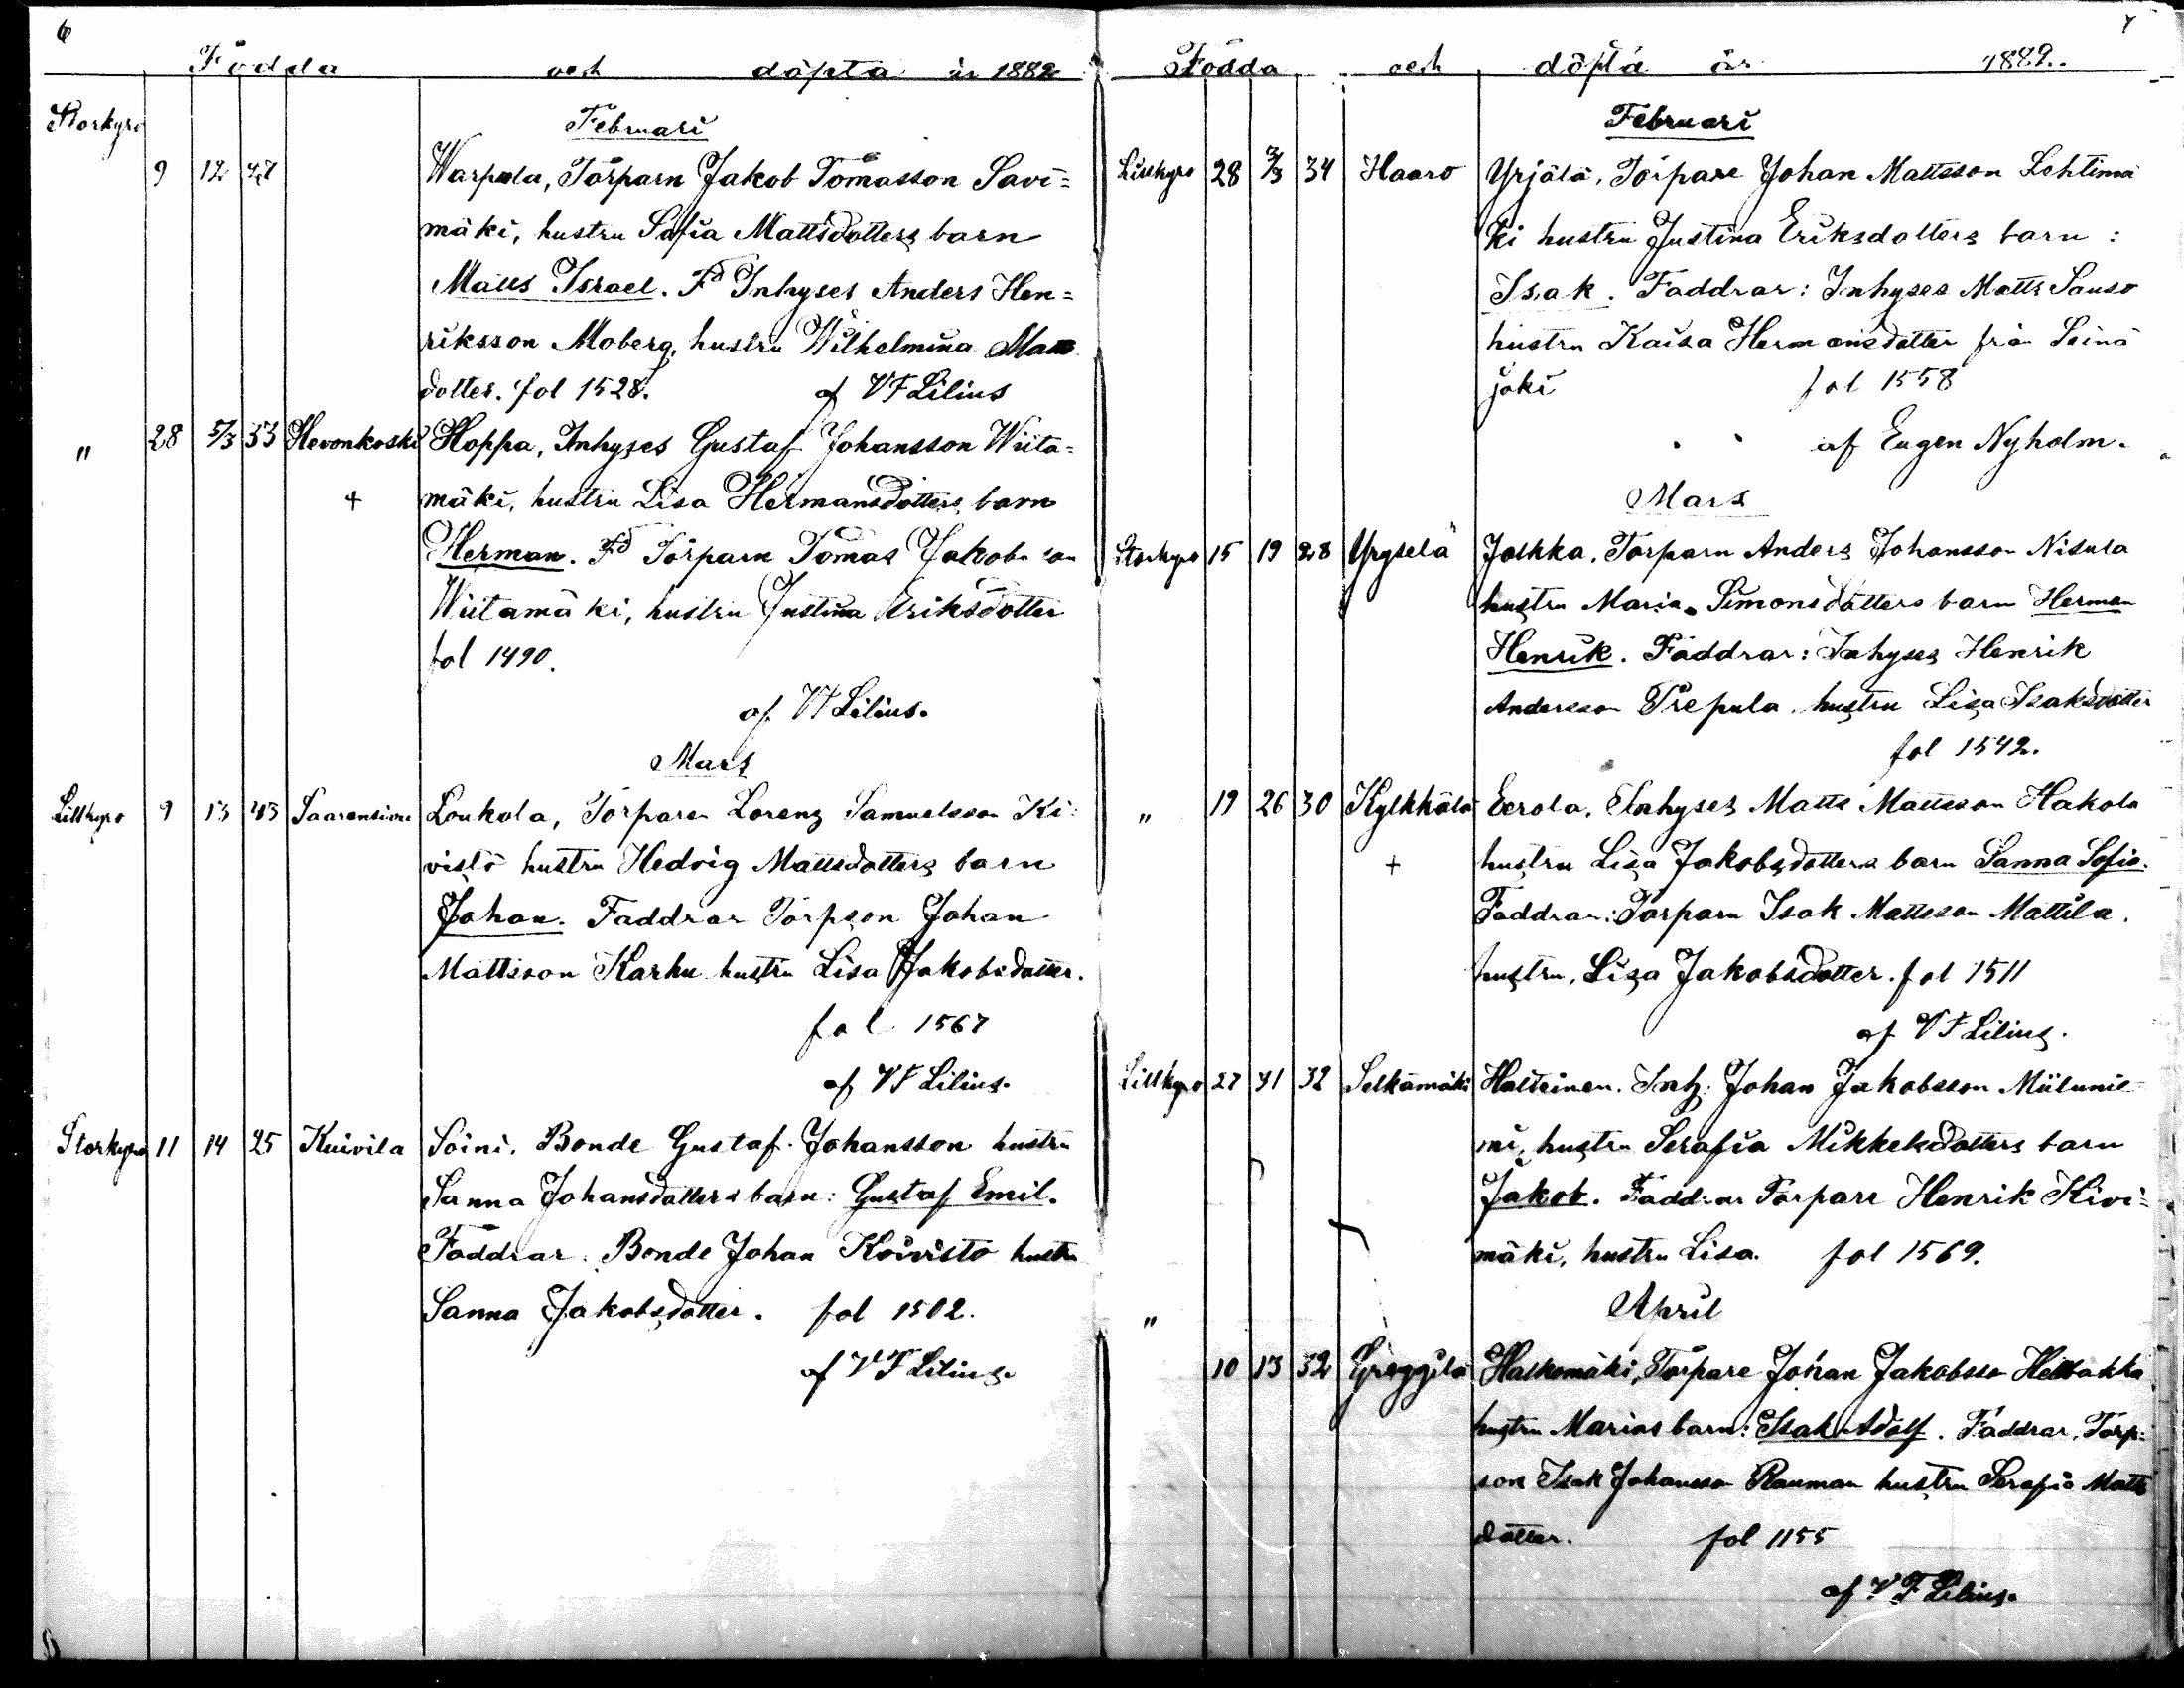 6
Födda och döpta år 1882
Storkyro
Februari
9 12 47 Warpula, Torparn Jakob Tomasson Savi=
mäki, hustru Sofia Mattsdotters barn
Matts Israel. Fd Inhyses Anders Hen=
riksson Moberg, hustru Wilhelmina Matts
dotter. fol 1528. af VF Lilius
" 28 5/3 33 Hevonkoski Hoppa, Inhyses Gustaf Johansson Wiita=
+ mäki, hustru Lisa Hermansdotters barn
Herman. Fd Torparn Tomas Jakobsson
Wiitamäki, hustru Justina Eriksdotter
fol 1490.
af VF Lilius.
Mars
Lillkyro 9 13 43 Saarensivu Loukola, Torparen Lorenz Samuelsson Ki=
vistö hustru Hedvig Mattsdotters barn
Johan. Faddrar Torpson Johan
Mattsson Karhu hustru Lisa Jakobsdotter.
fol 1567
af VF Lilius.
Storkyro 11 14 25 Kuivila Soini. Bonde Gustaf Johansson hustru
Sanna Johansdotters barn: Gustaf Emil.
Faddrar: Bonde Johan Koivisto hustru
Sanna Jakobsdotter. fol 1502.
af VF Lilius.
7
Födda och döpta år 1882.
Februari
Lillkyro 28 3/3 34 Haaro Yrjälä, Torpare Johan Mattsson Lehtimä
ki hustru Justina Eriksdotters barn:
Isak. Faddrar: Inhyses Matts Sauso
hustru Kaisa Hermansdotter från Seinä
joki fol 1558
af Eugen Nyholm.
Mars
Storkyro 15 19 28 Yrysela Jaskka, Torparn Anders Johansson Nisula
hustru Maria Simonsdotters barn Herman
Henrik. Faddrar: Inhyses Henrik
Andersson Prepula, hustru Lisa Isaksdotter
fol 1542.
" 19 26 30 Kylkkälä Eerola, Inhyses Matts Mattsson Hakola
+ hustru Lisa Jakobsdotters barn Sanna Sofia.
Faddrar: Torparn Isak Mattsson Mattila.
hustru, Lisa Jakobsdotter. fol 1511
af VF Lilius.
Lillkyro 27 31 32 Selkämäki Halteinen. Inh: Johan Jakobsson Miilunie
mi, hustru Serafia Mikkelsdotters barn
Jakob. Faddrar Torpare Henrik Kivi=
mäki, hustru Lisa. fol 1569.
April
" 10 13 32 Greggilä Halkomäki, Torpare Johan Jakobsso
hustru Marias barn: Isak Adolf. Faddrar, Torp:
son Isak Johansso Rauman hustru Serafia Matts
dotter. fol 1155
af VF Lilius.